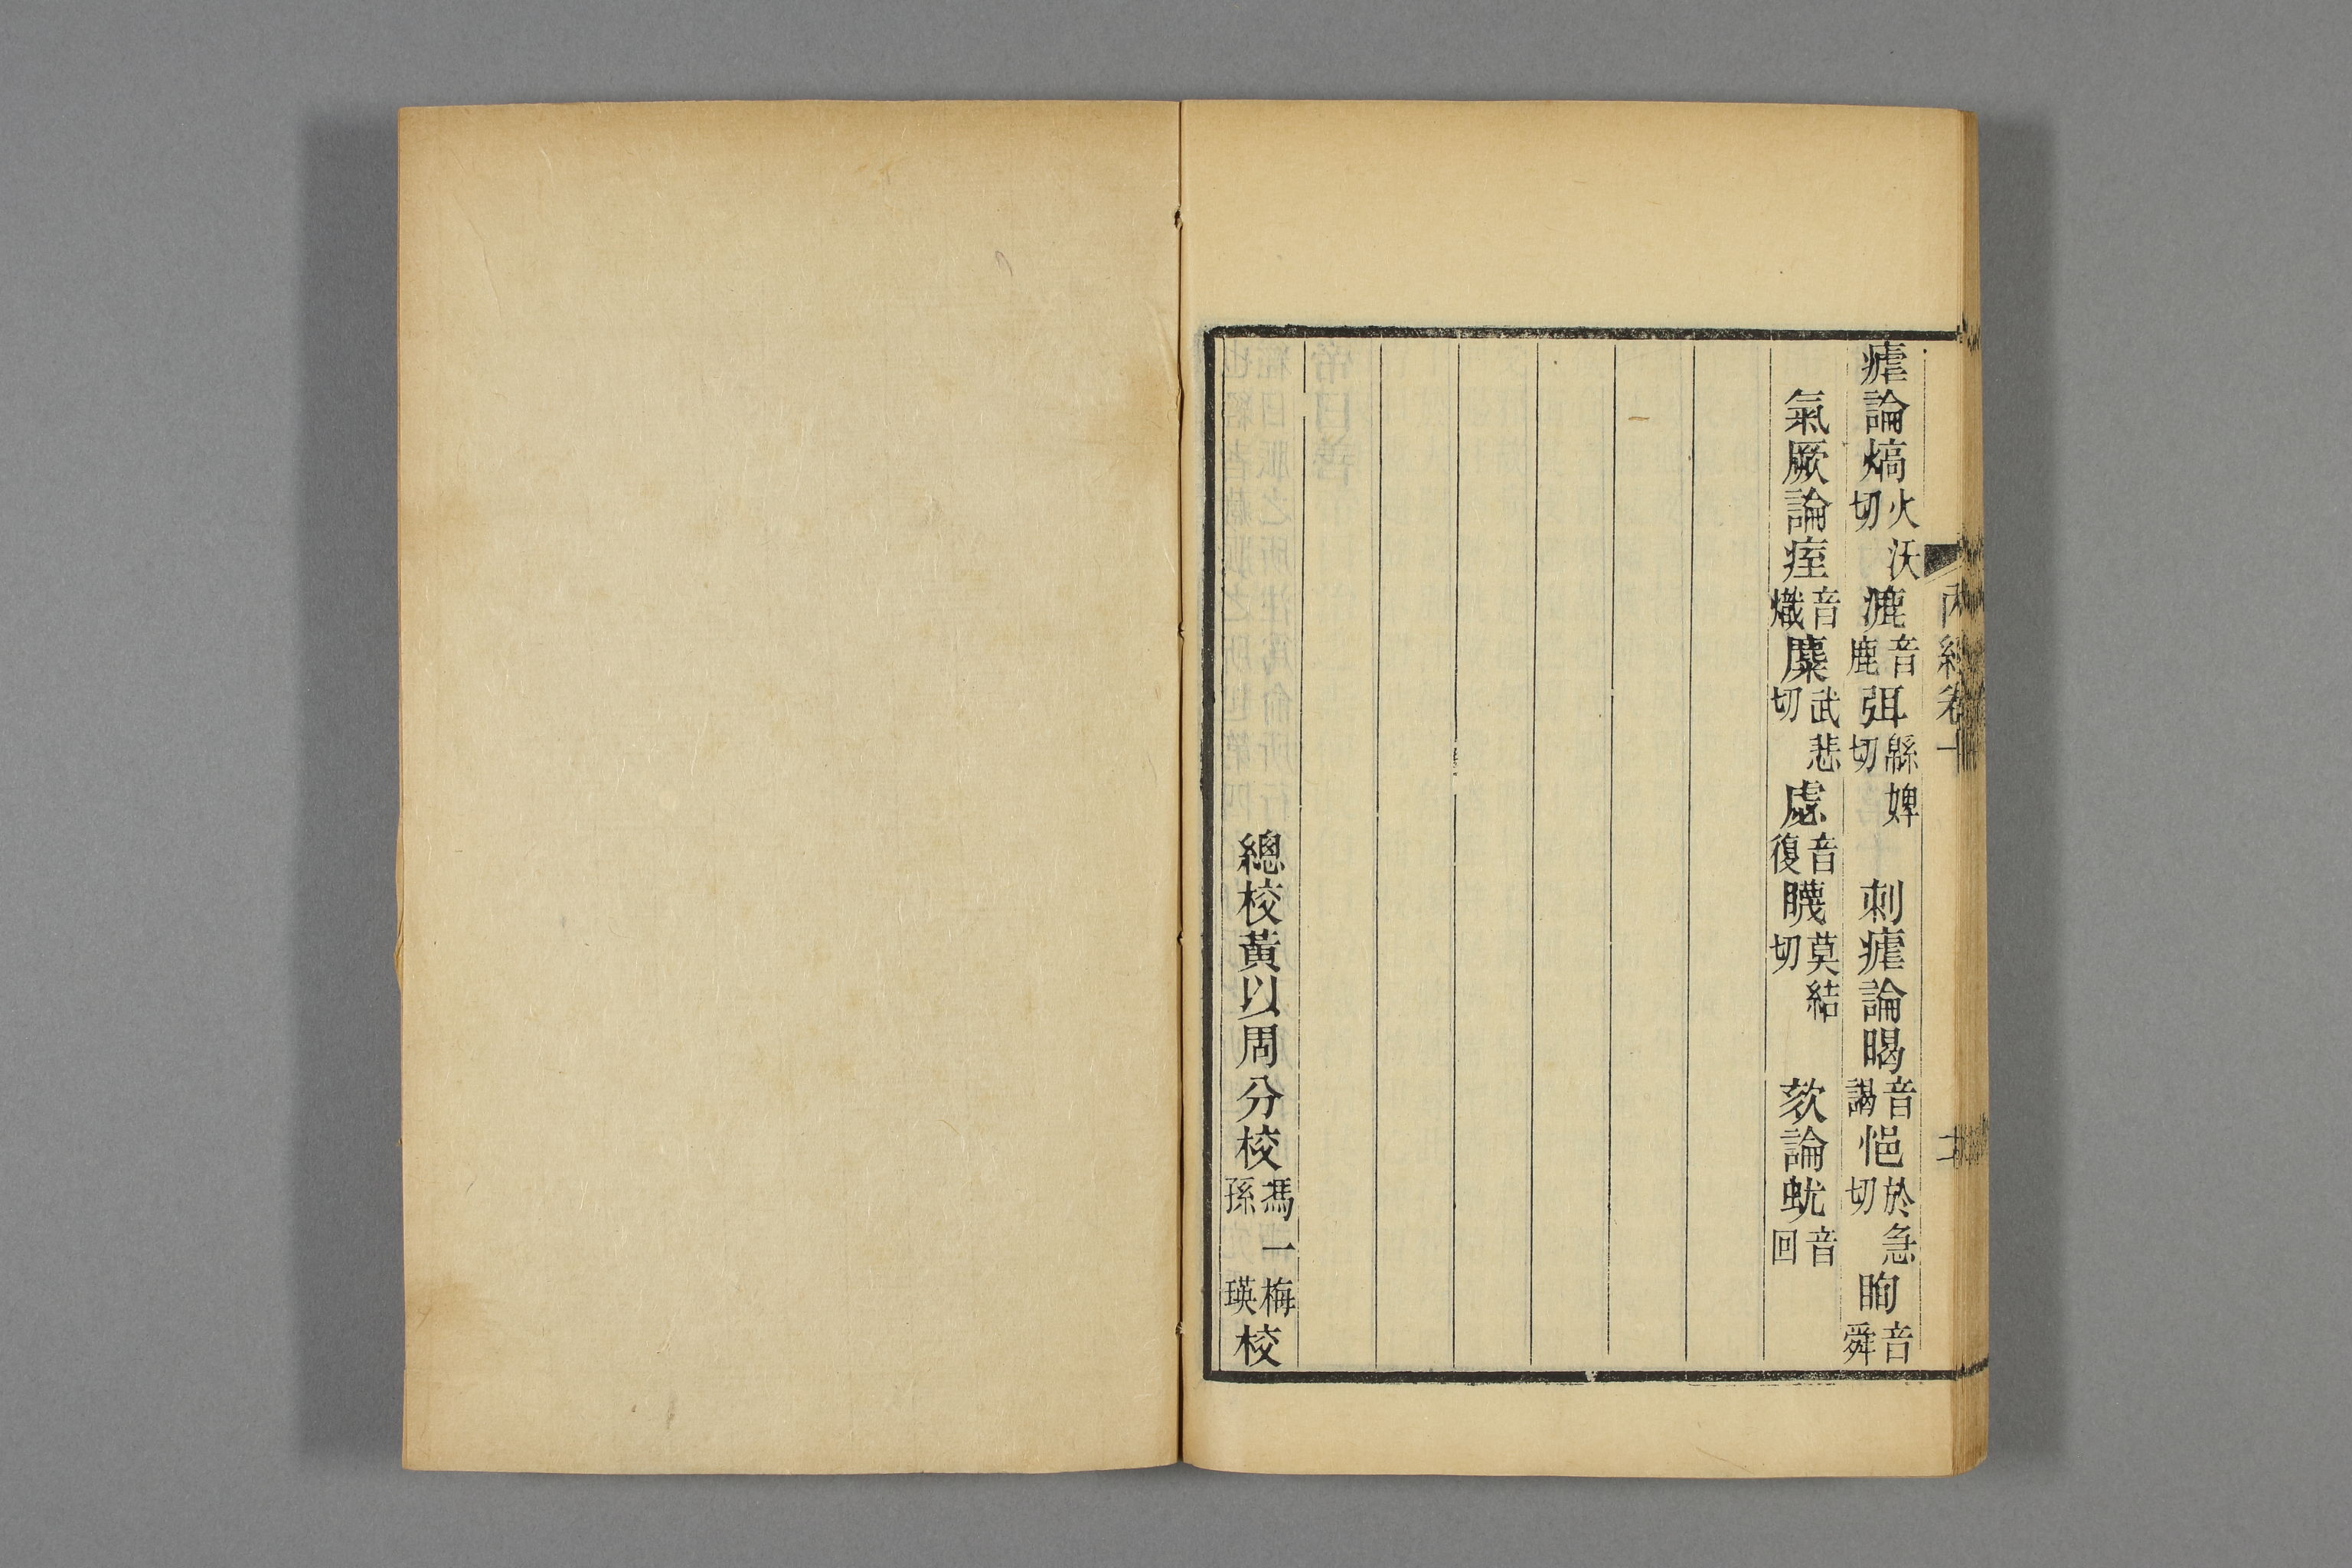 瘧論熇火沃切漉音鹿弭緜婢切　刺瘧論暍音謁悒於急切眴音舜
氣厥論痓音熾麋武悲切虙音復瞡莫結切　欬論蚘音回
總校黃以周分校馮一梅孫瑛校